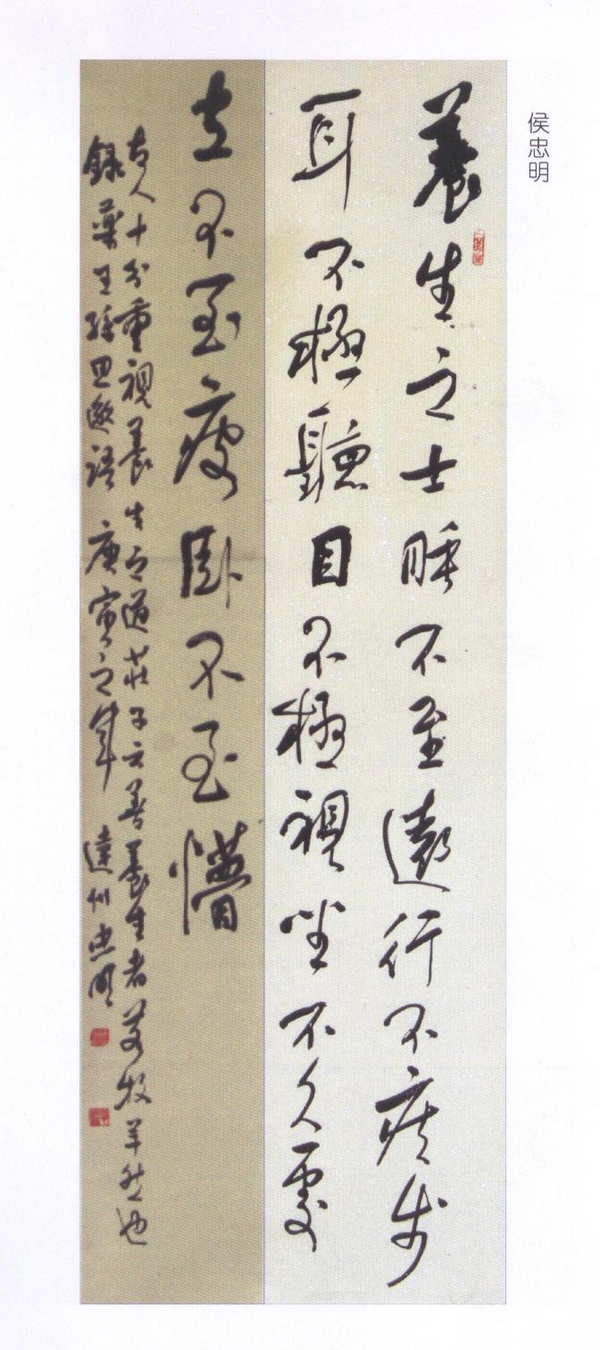 侯忠明
養生之士唾不至遠行不疾步
耳不極聽目不極視坐不久處
立不至疲卧不至懵
古人十分重視養生之道莊子云善養生者若牧羊然也
錄藥王孫思邈語 庚寅之年 達州忠明